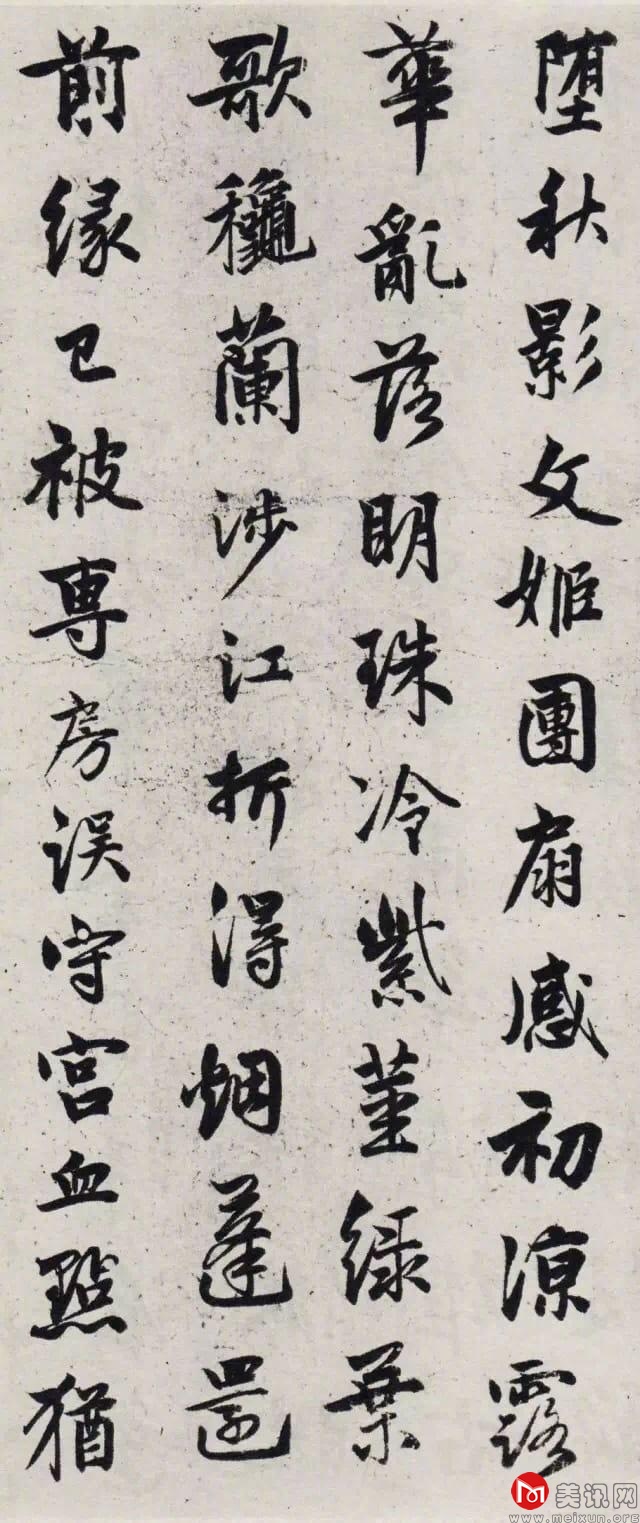 堕秋影文姬團扇感初涼露
華亂落明珠冷紫莖綠葉
歌穐蘭涉江折得烟蓬還
前緣已被專房誤守宮血點猶
美讯网
www.meixun.org